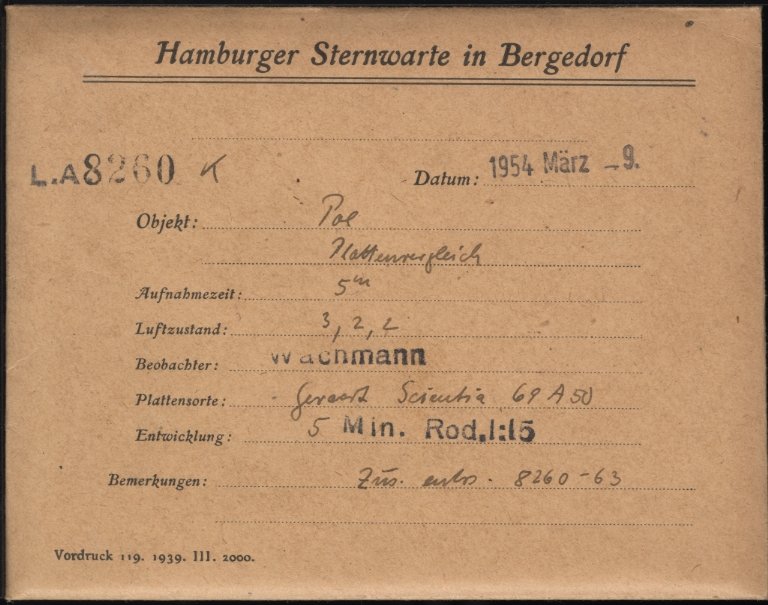 Hamburger Sternwarte in Bergedorf
L.A 8260 K
Datum: 1954 März -9.
Objekt: Pol
Plattenvergleich
Aufnahmezeit: 5m
Luftzustand: 3, 2, 2
Beobachter: Wachmann
Plattensorte: Gevaert Scientia 69 A 50
Entwicklung: 5 Min. Rod. 1:15
Bemerkungen: Zus. entw. 8260-63
Vordruck 119. 1939. III. 2000.